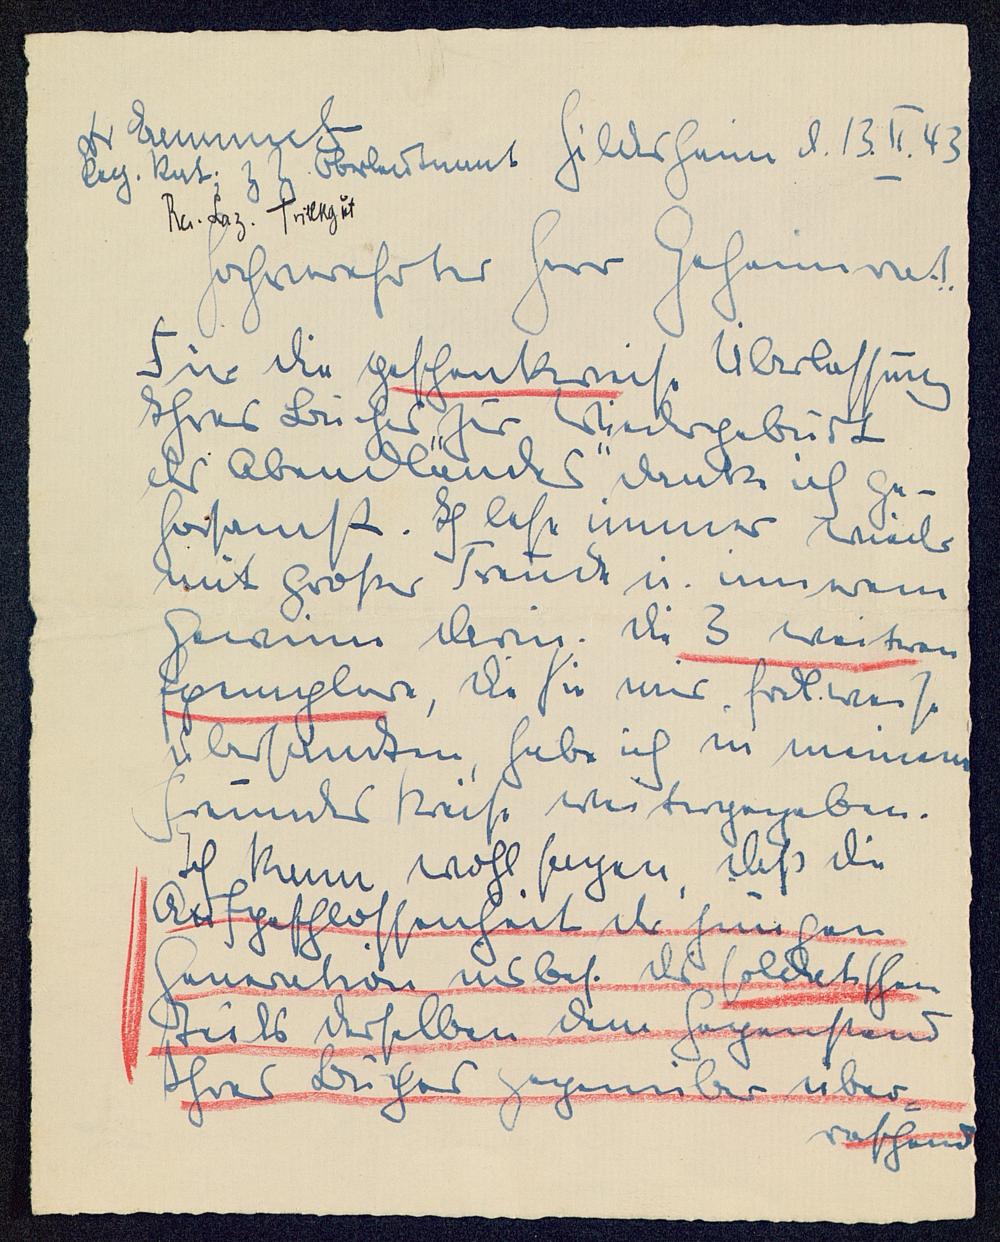 Dr
Reg. Rat. z. Z. Oberleutnant Hildesheim d. 13.II.43
Res. Laz. Trillkgut
Hochverehrter Herr Geheimrat!
Für die geschenkweise Überlassung
Ihres Buches "Zur Wiedergeburt
des Abendlandes" danke ich ge-
horsamst. Ich lese immer wieder
mit großer Freude u. innerem
Gewinn darin. Die 3 weiteren
Exemplare, die Sie mir frdl.weise
übersandten, habe ich in meinem
Freundeskreise weitergegeben.
Ich kann wohl sagen, daß die
Aufgeschlossenheit der jungen
Generation insbes. des soldatischen
Teils derselben dem Gegenstand
Ihres Buches gegenüber über-
raschend